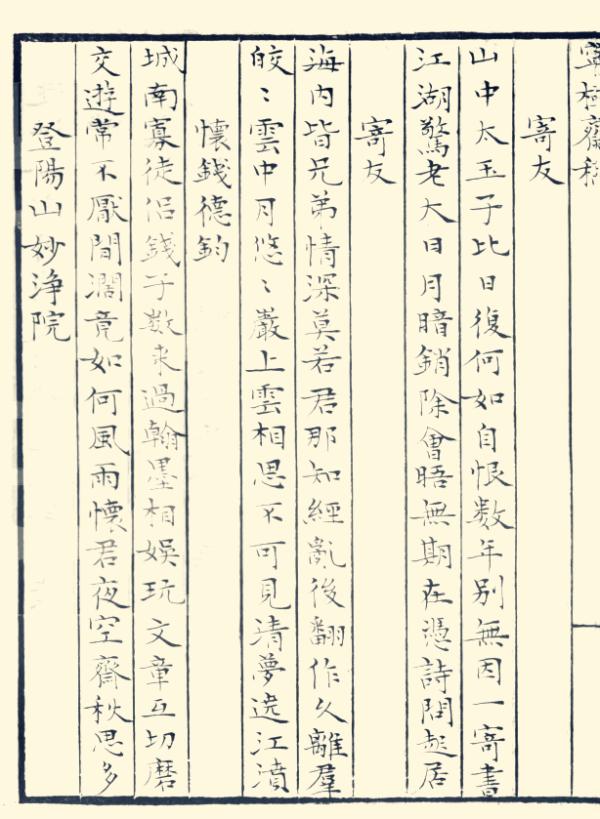 寧極齋稿
寄友
山中太玉子比日復何如自恨数年别無因一寄書
江湖驚老大日月暗銷除會晤無期在憑詩問起居
寄友
海内皆兄弟情深莫若君那知經亂後翻作久離羣
皎〻雲中月悠〻巖上雲相思不可見清夢遶江濆
懷錢德鈞
城南寡徒侣錢子数来過翰墨相娱玩文章互切磨
交遊常不厭間濶竟如何風雨懷君夜空齋秋思多
登陽山妙浄院